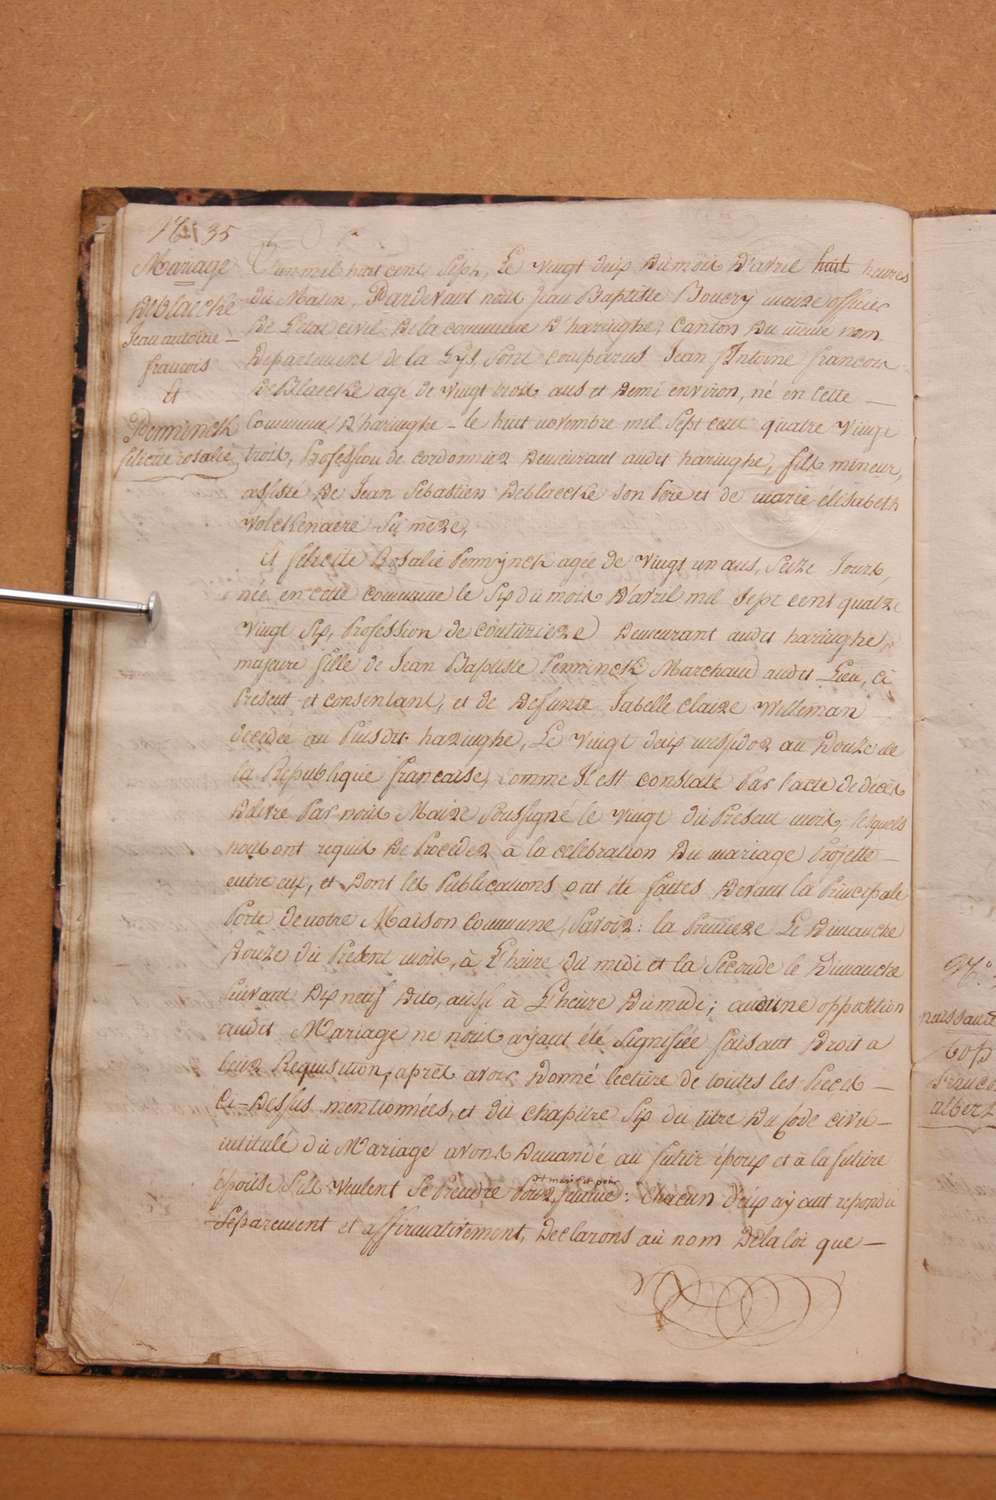 N° 35
Mariage
Deblaecke
Jean antoine
francois
et
Penninck
felicite rosalie
L'an mil huit cent Sept, Le Vingt deux du mois D'avril huit heures
du Matin, Pardevant nous Jean Baptiste Bouery maire officier
De L'etat civil De la commune D'haringhe, Canton Du meme nom
Departement de la Lys, Sont comparus Jean Antoine francois
DeBlaecke agé de Vingt trois ans et Demi environ, né en Cette
Commune D'haringhe - le huit novembre mil Sept cent quatre Vingt
trois, Profession de cordonnier Demeurant audit haringhe, fils mineur,
assisté De Jean Sébastien Deblaecke Son Pere et de marie élisabeth
Volckenaere Sa mere,
et felicité Rosalie Pennynck agee de Vingt un ans, Seize Jours,
née en cette commune le Six du mois D'avril mil Sept cent quatre
Vingt Six, Profession de couturiere Demeurant audit haringhe,
majeure fille de Jean Baptiste Penninck Marchand audit Lieu, ci
Present et consentant, et de Defunte Isabelle claire Willeman
decedée au Susdit haringhe, Le Vingt deux messidor au Douze de
la Republique francaise, Comme Il est constaté Par l'acte de décès
Delivré Par nous Maire Soussigné le Vingt du Present mois, lesquels
nous ont requis De Proceder à la celebration Du mariage Projetté
entre eux, et Dont les Publications ont été faites Devant la Principale
Porte de notre Maison Commune, Savoir: la Premiere Le Dimanche
Douze du Present mois, à L'heure du midi et la Seconde le Dimanche
Suivant Dix neuf Dito, aussi à L'heure Du midi; aucune opposition
audit Mariage ne nous ayant été Signifiée faisant Droit a
leur Requisition, après avoir Donné lecture de toutes les Pieces
Ci-Dessus mentionnées, et du chapitre Six du titre Du Code civil
intitulé du Mariage avons Demandé au futur epoux et à la future
épouse S'ils Veulent Se Prendre Pour
et mari et pour
femme: Chacun D'eux ayant repondu
Séparement et affirmativement, Declarons au nom De la loi que
N°
naissance
albert